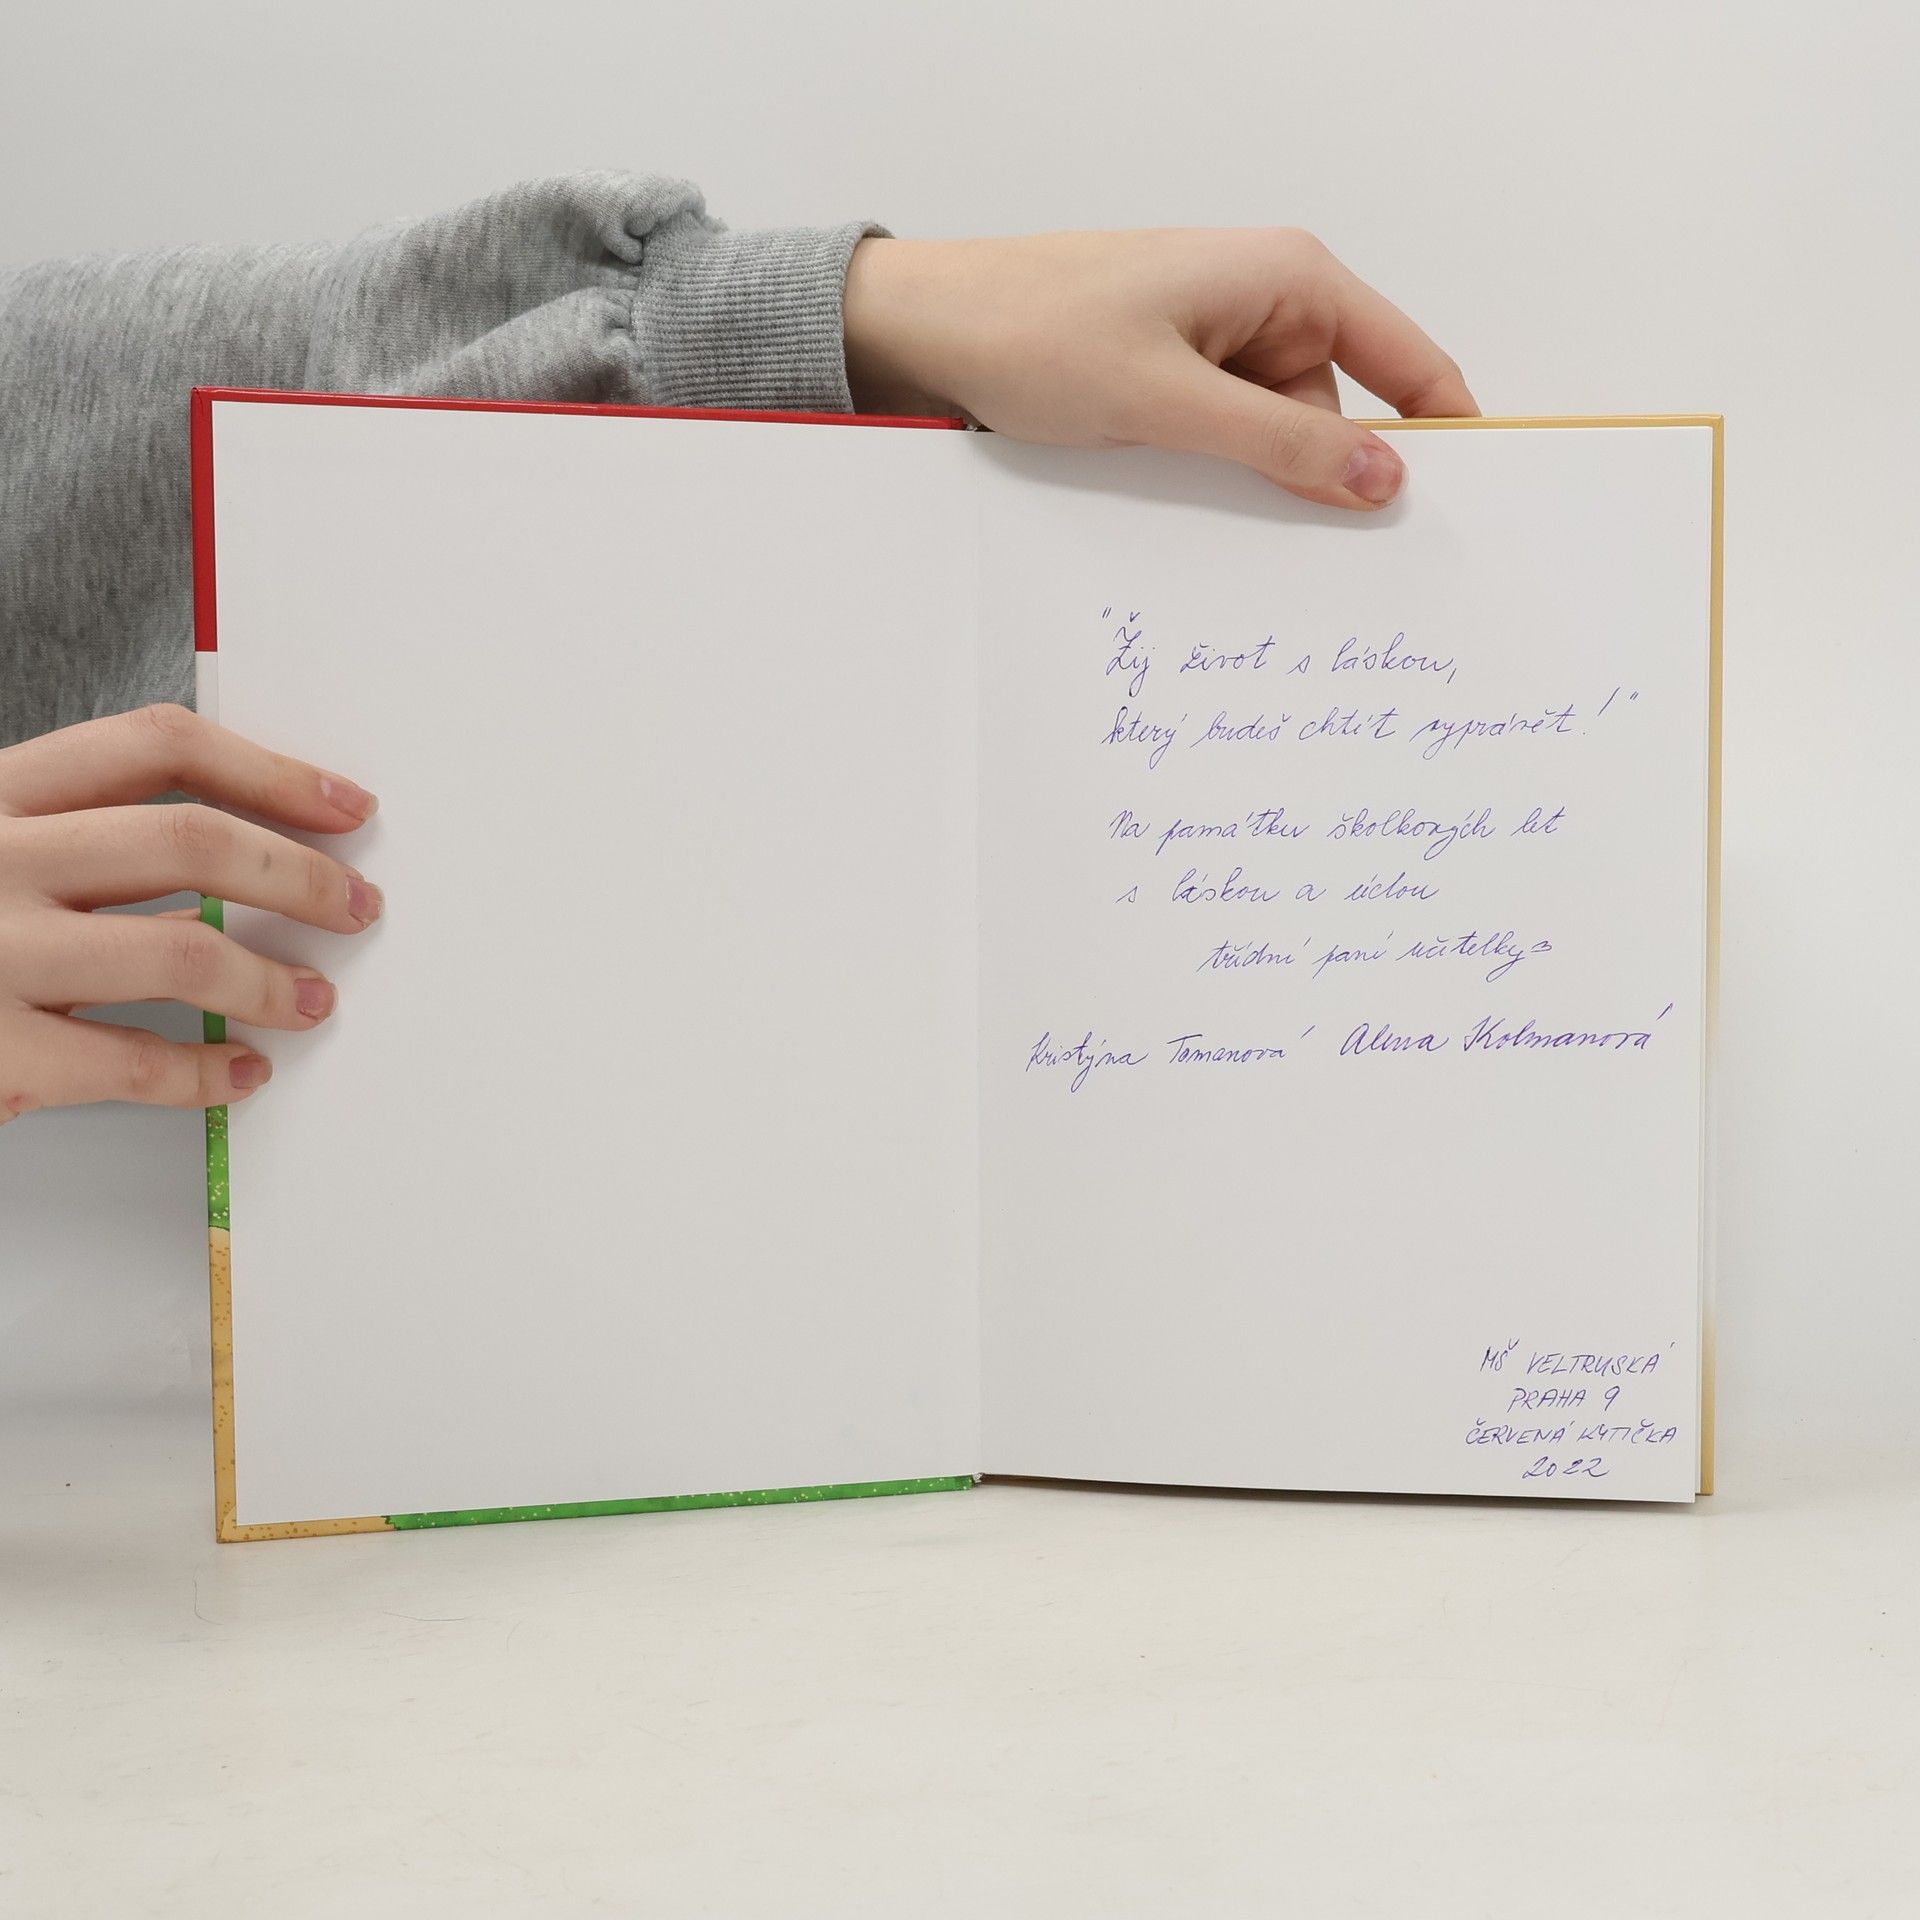 "Žij život s láskou,
který budeš chtít vyprávět!"
Na památku školkových let
s láskou a úctou
třídní paní učitelky
Kristýna Tomanová Alena Kolmanová
MŠ VELTRUSKÁ
PRAHA 9
ČERVENÁ KYTIČKA
2022